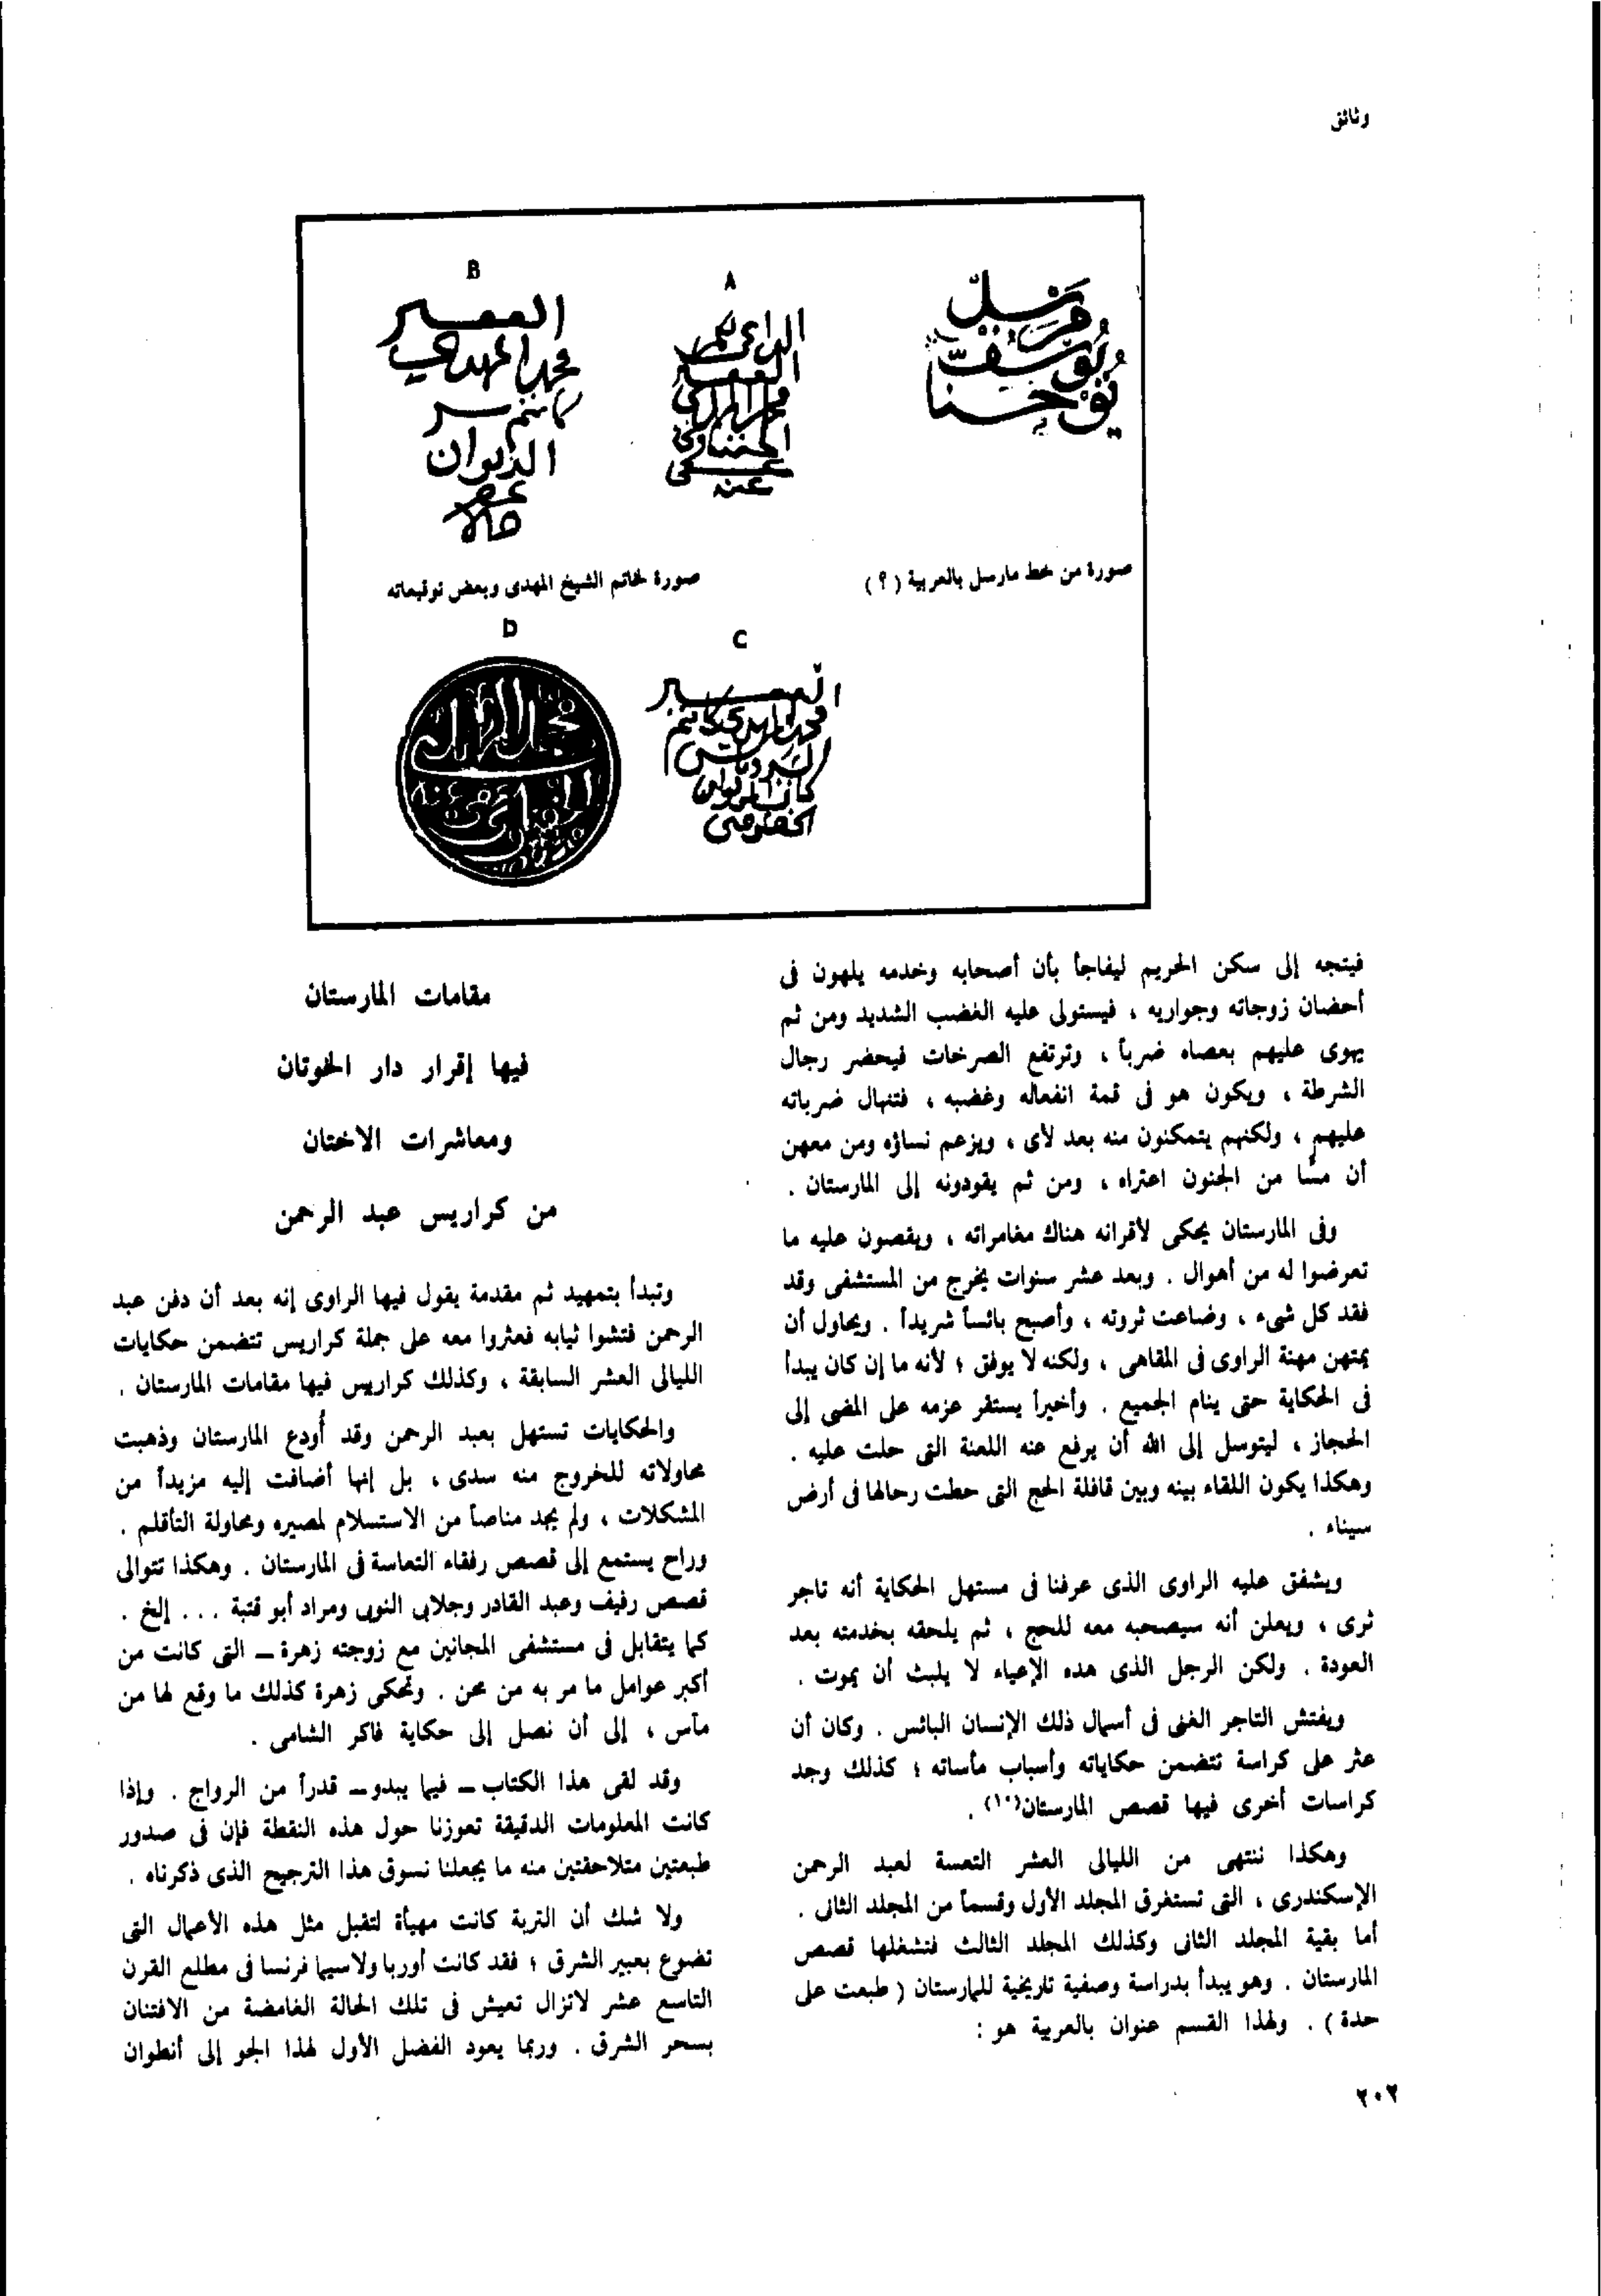 وثائق
مرسل
يوسف
يوحنا
A
B
الفقير
محمد المهدى
كاتم سر
الديوان
صورة من خط مارسل بالعربية (؟)
صورة لخاتم الشيخ المهدى وبعض توقيعاته
C
D
فيتجه إلى سكن الحريم ليفاجأ بأن أصحابه وخدمه يلهون فى
أحضان زوجاته وجواريه ، فيستولى عليه الغضب الشديد ومن ثم
يهوى عليهم بعصاه ضرباً ، وترتفع الصرخات فيحضر رجال
الشرطة ، ويكون هو فى قمة انفعاله وغضبه ، فتنهال ضرباته
عليهم ، ولكنهم يتمكنون منه بعد لأى ، ويزعم نساؤه ومن معهن
أن مسًّا من الجنون اعتراه ، ومن ثم يقودونه إلى المارستان .
وفى المارستان يحكى لأقرانه هناك مغامراته ، ويقصون عليه ما
تعرضوا له من أهوال . وبعد عشر سنوات يخرج من المستشفى وقد
فقد كل شىء ، وضاعت ثروته ، وأصبح بائساً شريداً . ويحاول أن
يمتهن مهنة الراوى فى المقاهى ، ولكنه لا يوفق ؛ لأنه ما إن كان يبدأ
فى الحكاية حتى ينام الجميع . وأخيراً يستقر عزمه على المضى إلى
الحجاز ، ليتوسل إلى الله أن يرفع عنه اللعنة التى حلت عليه .
وهكذا يكون اللقاء بينه وبين قافلة الحج التى حطت رحالها فى أرض
سيناء .
ويشفق عليه الراوى الذى عرفنا فى مستهل الحكاية أنه تاجر
ثرى ، ويعلن أنه سيصحبه معه للحج ، ثم يلحقه بخدمته بعد
العودة . ولكن الرجل الذى هده الإعياء لا يلبث أن يموت .
ويفتش التاجر الغنى فى أسمال ذلك الإنسان البائس . وكان أن
عثر على كراسة تتضمن حكاياته وأسباب مأساته ؛ كذلك وجد
كراسات أخرى فيها قصص المارستان(١٠) .
وهكذا ننتهى من الليالى العشر التعسة لعبد الرحمن
الإسكندرى ، التى تستغرق المجلد الأول وقسماً من المجلد الثانى .
أما بقية المجلد الثانى وكذلك المجلد الثالث فتشغلها قصص
المارستان . وهو يبدأ بدراسة وصفية تاريخية للمارستان ( طبعت على
حدة ) . ولهذا القسم عنوان بالعربية هو :
مقامات المارستان
فيها إقرار دار الخوتان
ومعاشرات الاختان
من كراريس عبد الرحمن
وتبدأ بتمهيد ثم مقدمة يقول فيها الراوى إنه بعد أن دفن عبد
الرحمن فتشوا ثيابه فعثروا معه على جملة كراريس تتضمن حكايات
الليالى العشر السابقة ، وكذلك كراريس فيها مقامات المارستان .
والحكايات تستهل بعبد الرحمن وقد أُودع المارستان وذهبت
محاولاته للخروج منه سدى ، بل إنها أضافت إليه مزيداً من
المشكلات ، ولم يجد مناصاً من الاستسلام لمصيره ومحاولة التأقلم .
وراح يستمع إلى قصص رفقاء التعاسة فى المارستان . وهكذا تتوالى
قصص رفيف وعبد القادر وجلابى النوبى ومراد أبو قتبة ... إلخ .
كما يتقابل فى مستشفى المجانين مع زوجته زهرة ــ التى كانت من
أكبر عوامل ما مر به من محن . وتحكى زهرة كذلك ما وقع لها من
مآس ، إلى أن نصل إلى حكاية فاكر الشامى .
وقد لقى هذا الكتاب ــ فيما يبدو ــ قدراً من الرواج . وإذا
كانت المعلومات الدقيقة تعوزنا حول هذه النقطة فإن فى صدور
طبعتين متلاحقتين منه ما يجعلنا نسوق هذا الترجيح الذى ذكرناه .
ولا شك أن التربة كانت مهيأة لتقبل مثل هذه الأعمال التى
تضوع بعبير الشرق ؛ فقد كانت أوربا ولاسيما فرنسا فى مطلع القرن
التاسع عشر لاتزال تعيش فى تلك الحالة الغامضة من الافتنان
بسحر الشرق . وربما يعود الفضل الأول لهذا الجو إلى أنطوان
٢٠٢